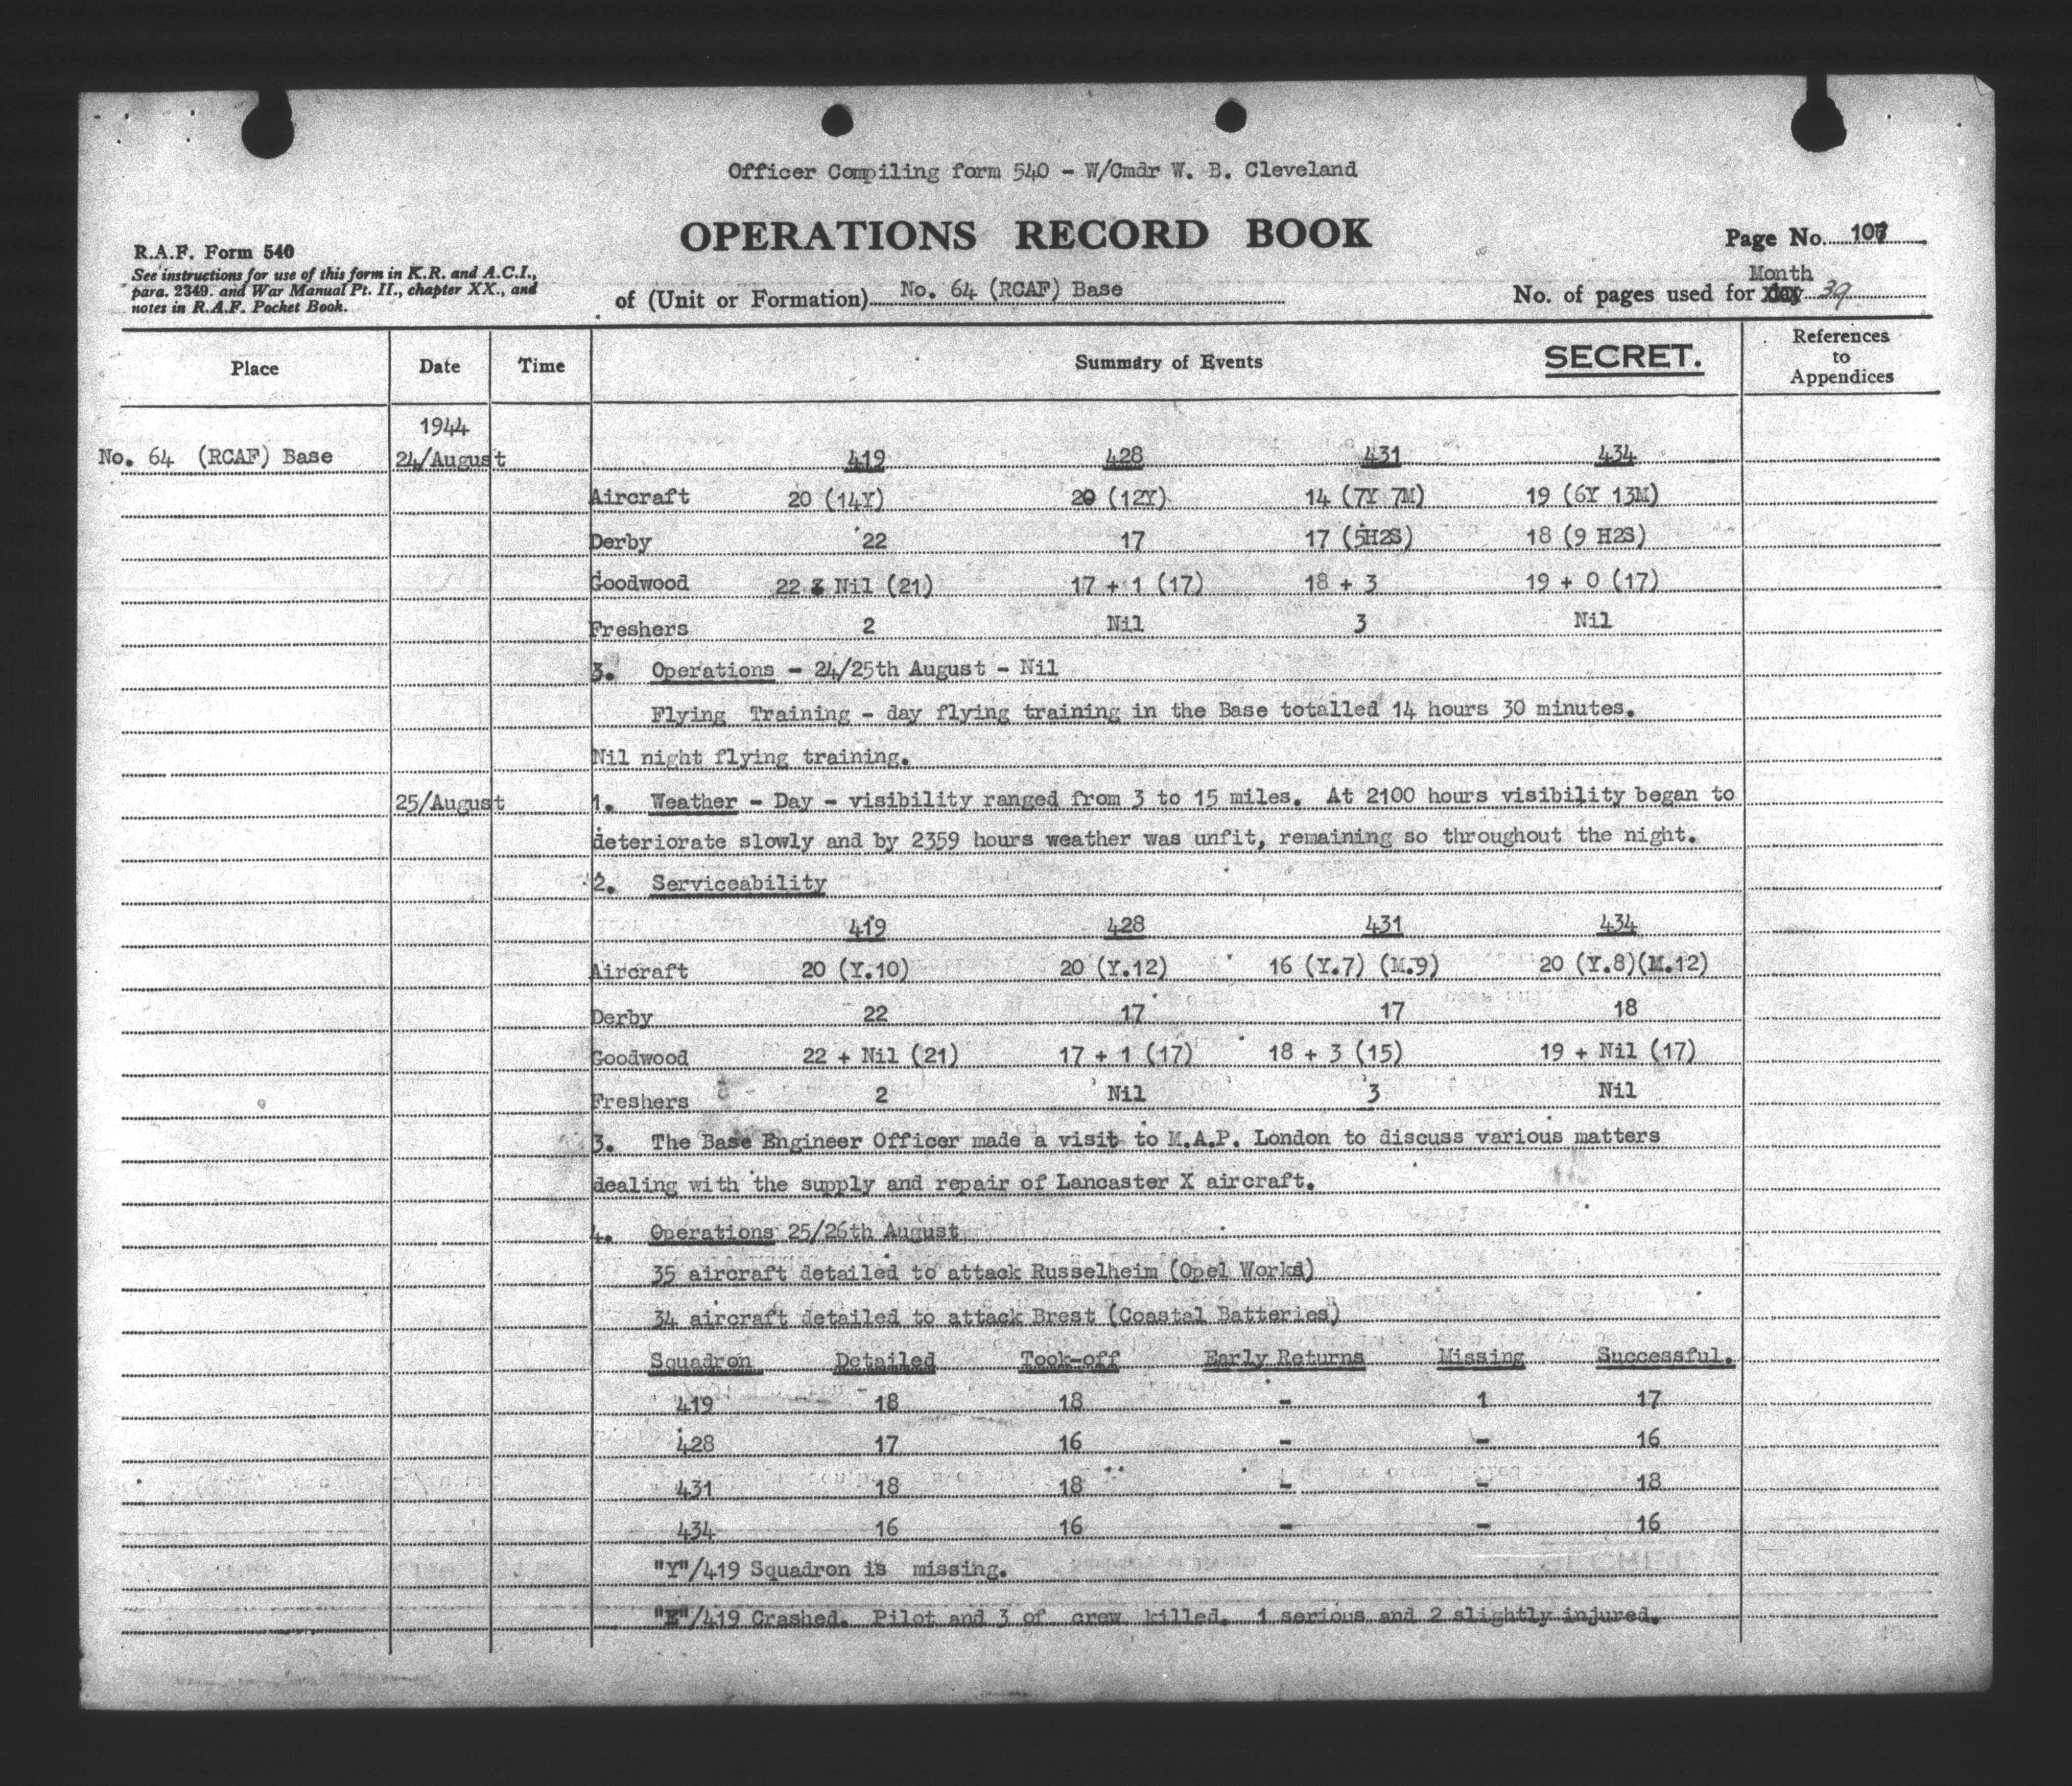 Officer Compiling form 540 - W/Cmdr W. B. Cleveland
OPERATIONS RECORD BOOK
R.A.F. Form 540
See instructions for use of this form in K.R. and A.C.I.,
para. 2349. and War Manual Pt. II., chapter XX., and
notes in R.A.F. Pocket Book.
of (Unit or Formation) No. 64 (RCAF) Base
Page No. 107
Month
No. of pages used for day 39
Place Date Time Summary of Events SECRET. References to Appendices
1944
No. 64 (RCAF) Base 24/August 419 428 431 434
Aircraft 20 (14Y) 20 (12Y) 14 (7Y 7M) 19 (6Y 13M)
Derby 22 17 17 (5H2S) 18 (9 H2S)
Goodwood 22 & Nil (21) 17 + 1 (17) 18 + 3 19 + 0 (17)
Freshers 2 Nil 3 Nil
3. Operations - 24/25th August - Nil
Flying Training - day flying training in the Base totalled 14 hours 30 minutes.
Nil night flying training.
25/August 1. Weather - Day - visibility ranged from 3 to 15 miles. At 2100 hours visibility began to
deteriorate slowly and by 2359 hours weather was unfit, remaining so throughout the night.
2. Serviceability
419 428 431 434
Aircraft 20 (Y.10) 20 (Y.12) 16 (Y.7) (M.9) 20 (Y.8)(M.12)
Derby 22 17 17 18
Goodwood 22 + Nil (21) 17 + 1 (17) 18 + 3 (15) 19 + Nil (17)
Freshers 2 Nil 3 Nil
3. The Base Engineer Officer made a visit to M.A.P. London to discuss various matters
dealing with the supply and repair of Lancaster X aircraft.
4. Operations 25/26th August
35 aircraft detailed to attack Russelheim (Opel Works)
34 aircraft detailed to attack Brest (Coastal Batteries)
Squadron Detailed Took-off Early Returns Missing Successful.
419 18 18 - 1 17
428 17 16 - - 16
431 18 18 - - 18
434 16 16 - - 16
"Y"/419 Squadron is missing.
"E"/419 Crashed. Pilot and 3 of crew killed. 1 serious and 2 slightly injured.